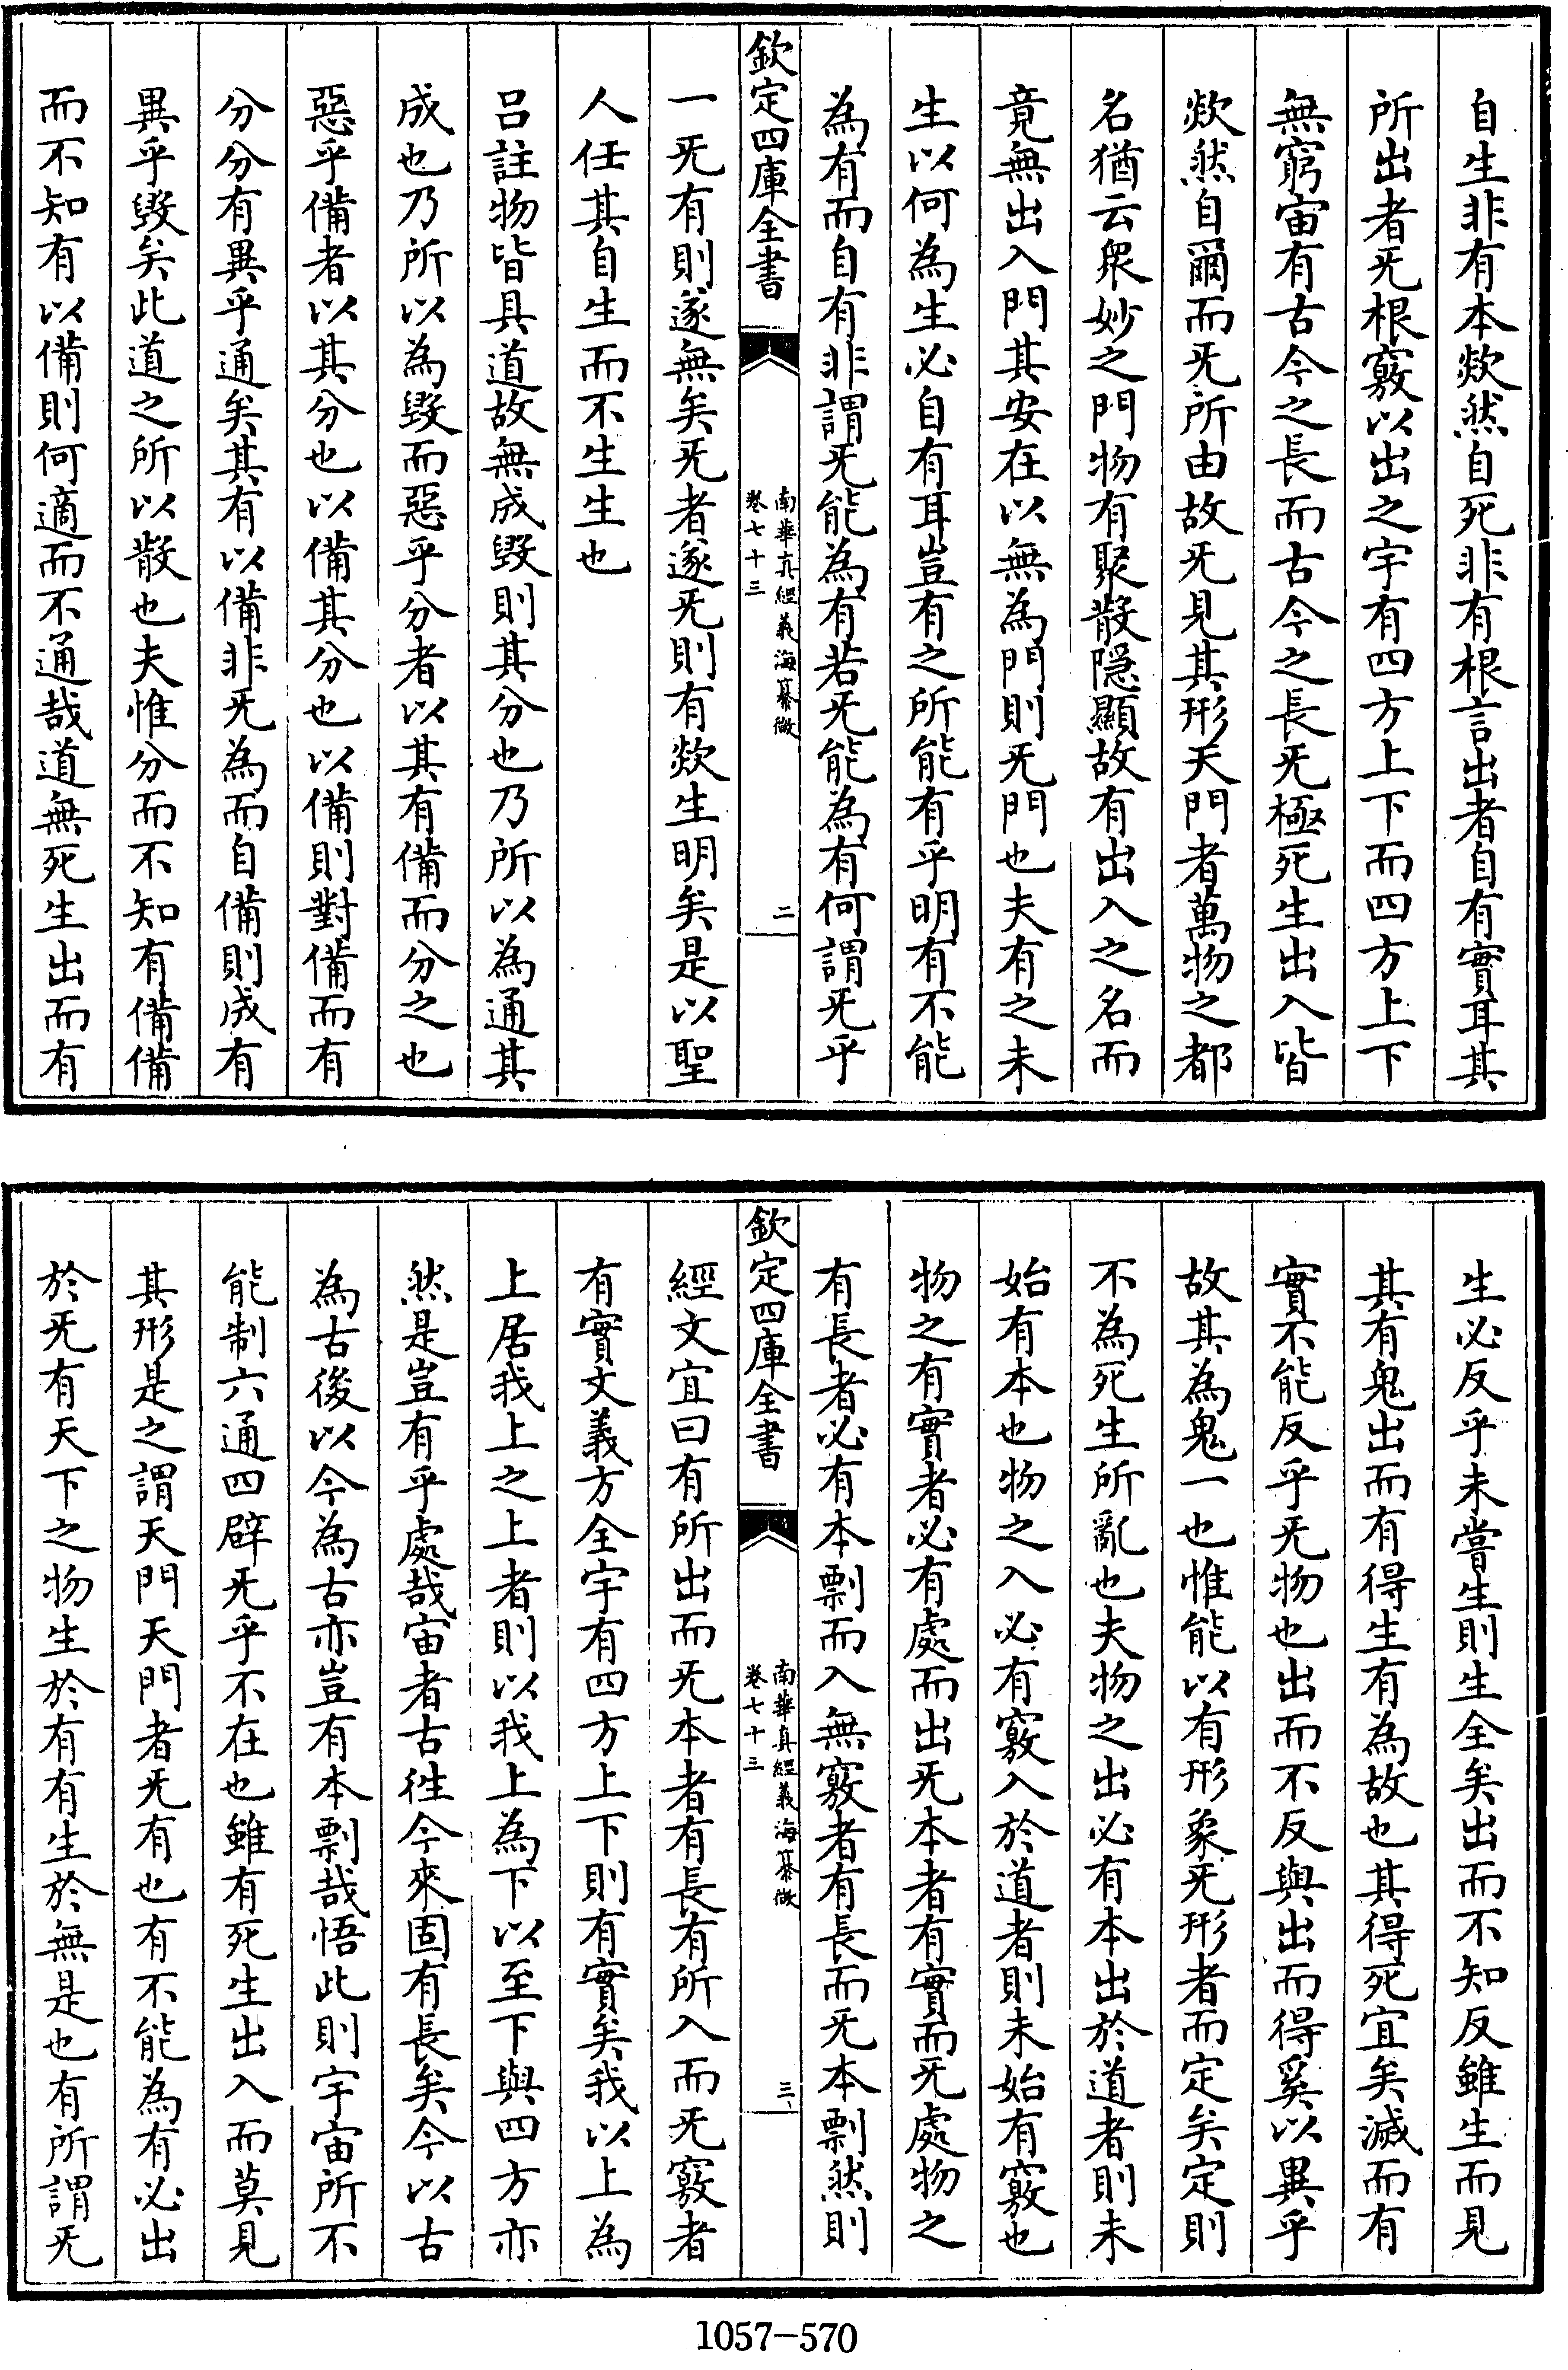 自生非有本欻然自死非有根言出者自有實耳其
所出者旡根竅以出之宇有四方上下而四方上下
無窮宙有古今之長而古今之長旡極死生出入皆
欻然自爾而旡所由故旡見其形天門者萬物之都
名猶云衆妙之門物有聚散隠顯故有出入之名而
竟無出入門其安在以無為門則旡門也夫有之未
生以何為生必自有耳豈有之所能有乎明有不能
為有而自有非謂旡能為有若旡能為有何謂旡乎
欽定四庫全書
南華真經義海纂微
卷七十三
二
一旡有則遂無矣旡者遂旡則有欻生明矣是以聖
人任其自生而不生生也
吕註物皆具道故無成毀則其分也乃所以為通其
成也乃所以為毀而惡乎分者以其有備而分之也
惡乎備者以其分也以備其分也以備則對備而有
分分有異乎通矣其有以備非旡為而自備則成有
異乎毀矣此道之所以散也夫惟分而不知有備備
而不知有以備則何適而不通哉道無死生出而有
生必反乎未嘗生則生全矣出而不知反雖生而見
其有鬼出而有得生有為故也其得死宜矣滅而有
實不能反乎旡物也出而不反與出而得奚以異乎
故其為鬼一也惟能以有形象旡形者而定矣定則
不為死生所亂也夫物之出必有本出於道者則未
始有本也物之入必有竅入於道者則未始有竅也
物之有實者必有處而出旡本者有實而旡處物之
有長者必有本剽而入無竅者有長而旡本剽然則
欽定四庫全書
南華真經義海纂微
卷七十三
三
經文宜曰有所出而旡本者有長有所入而旡竅者
有實文義方全宇有四方上下則有實矣我以上為
上居我上之上者則以我上為下以至下與四方亦
然是豈有乎處哉宙者古徃今來固有長矣今以古
為古後以今為古亦豈有本剽哉悟此則宇宙所不
能制六通四辟旡乎不在也雖有死生出入而莫見
其形是之謂天門天門者旡有也有不能為有必出
於旡有天下之物生於有有生於無是也有所謂旡
1057-570